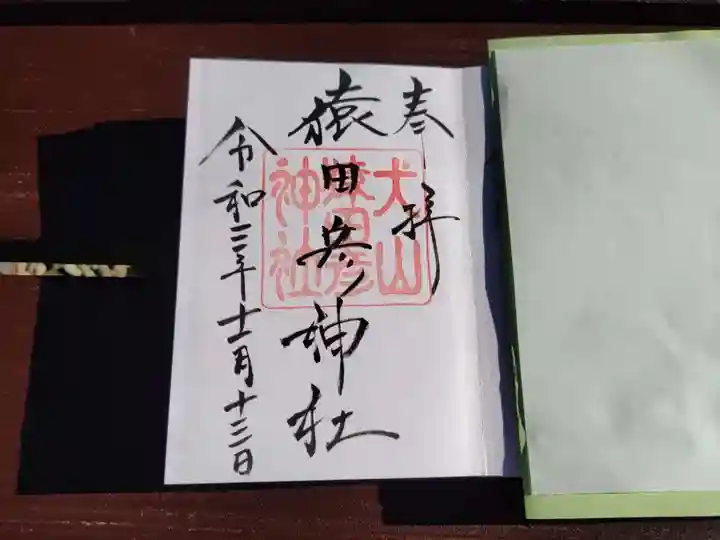 奉拝
猿田彦神社
犬山
猿田彦
神社
令和三年十二月十三日